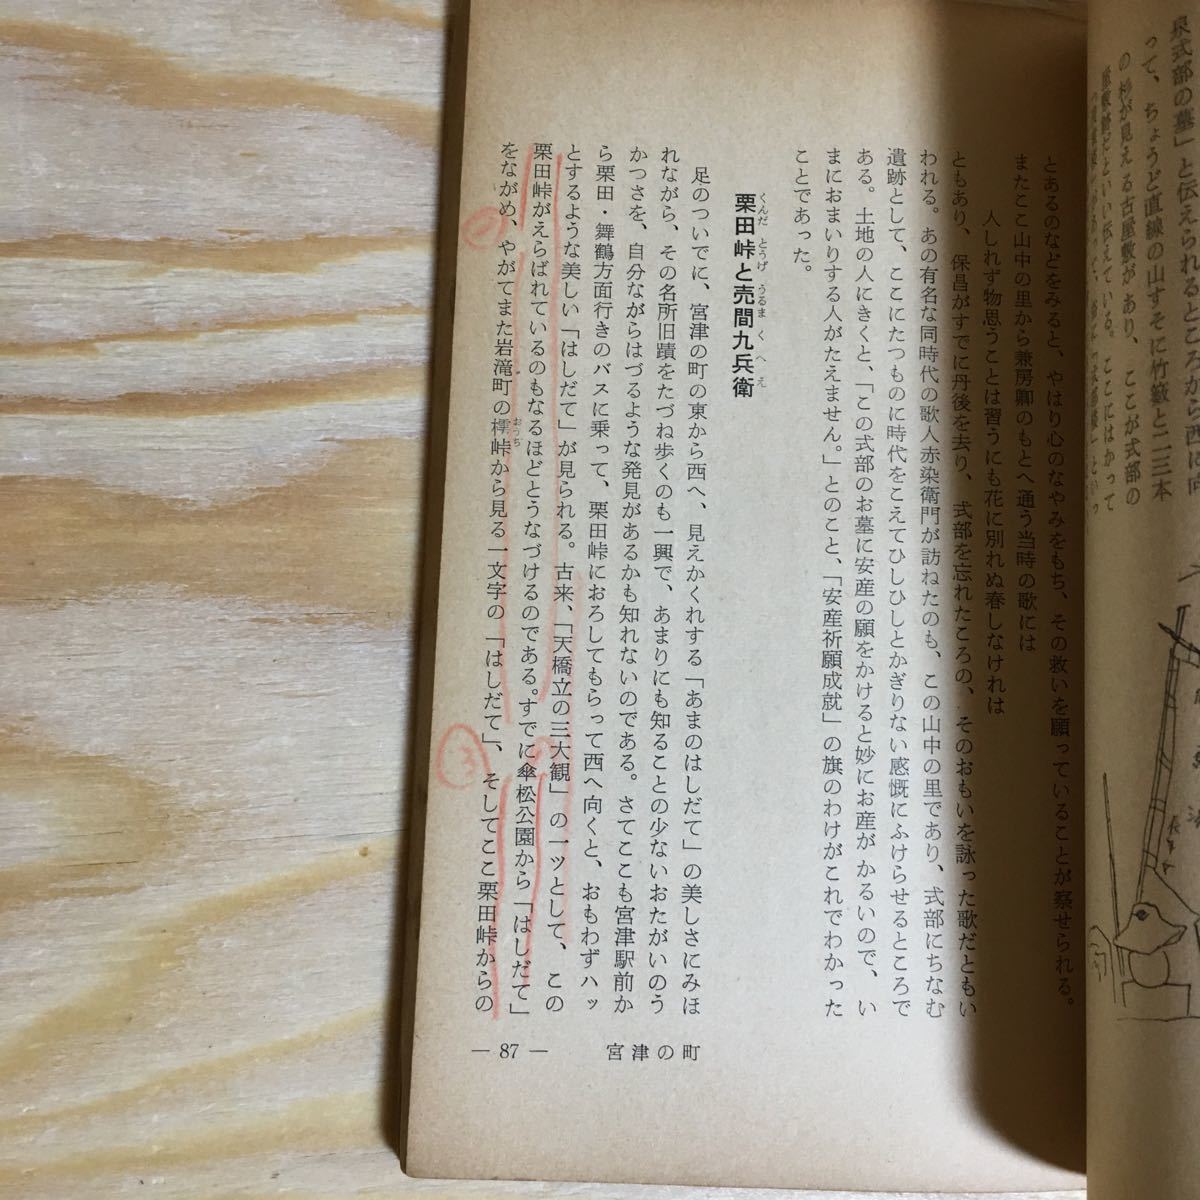 泉式部の墓」と伝えられるところから西に向
って、ちょうど直線の山すそに竹籔と二三本
の杉が見える古屋敷があり、ここが式部の
といい伝えている。ここにはかって
とあるのなどをみると、やはり心のなやみをもち、その救いを願っていることが察せられる。
またここ山中の里から兼房卿のもとへ通う当時の歌には
人しれず物思うことは習うにも花に別れぬ春しなければ
ともあり、保昌がすでに丹後を去り、式部を忘れたころの、そのおもいを詠った歌だともい
われる。あの有名な同時代の歌人赤染衛門が訪ねたのも、この山中の里であり、式部にちなむ
遺跡として、ここにたつものに時代をこえてひしひしとかぎりない感慨にふけらせるところで
ある。土地の人にきくと、「この式部のお墓に安産の願をかけると妙にお産がかるいので、い
まにおまいりする人がたえません。」とのこと、「安産祈願成就」の旗のわけがこれでわかった
ことであった。
栗田峠と売間九兵衛
くんだ とうげ うるま く へ え
足のついでに、宮津の町の東から西へ、見えかくれする「あまのはしだて」の美しさにみほ
れながら、その名所旧蹟をたづね歩くのも一興で、あまりにも知ることの少ないおたがいのう
かつさを、自分ながらはづるような発見があるかも知れないのである。さてここも宮津駅前か
ら栗田・舞鶴方面行きのバスに乗って、栗田峠におろしてもらって西へ向くと、おもわずハッ
とするような美しい「はしだて」が見られる。古来、「天橋立の三大観」の一ッとして、この
栗田峠がえらばれているのもなるほどとうなづけるのである。すでに傘松公園から「はしだて」
をながめ、やがてまた岩滝町の樗峠から見る一文字の「はしだて」、そしてここ栗田峠からの
おうち
宮津の町
— 87 —